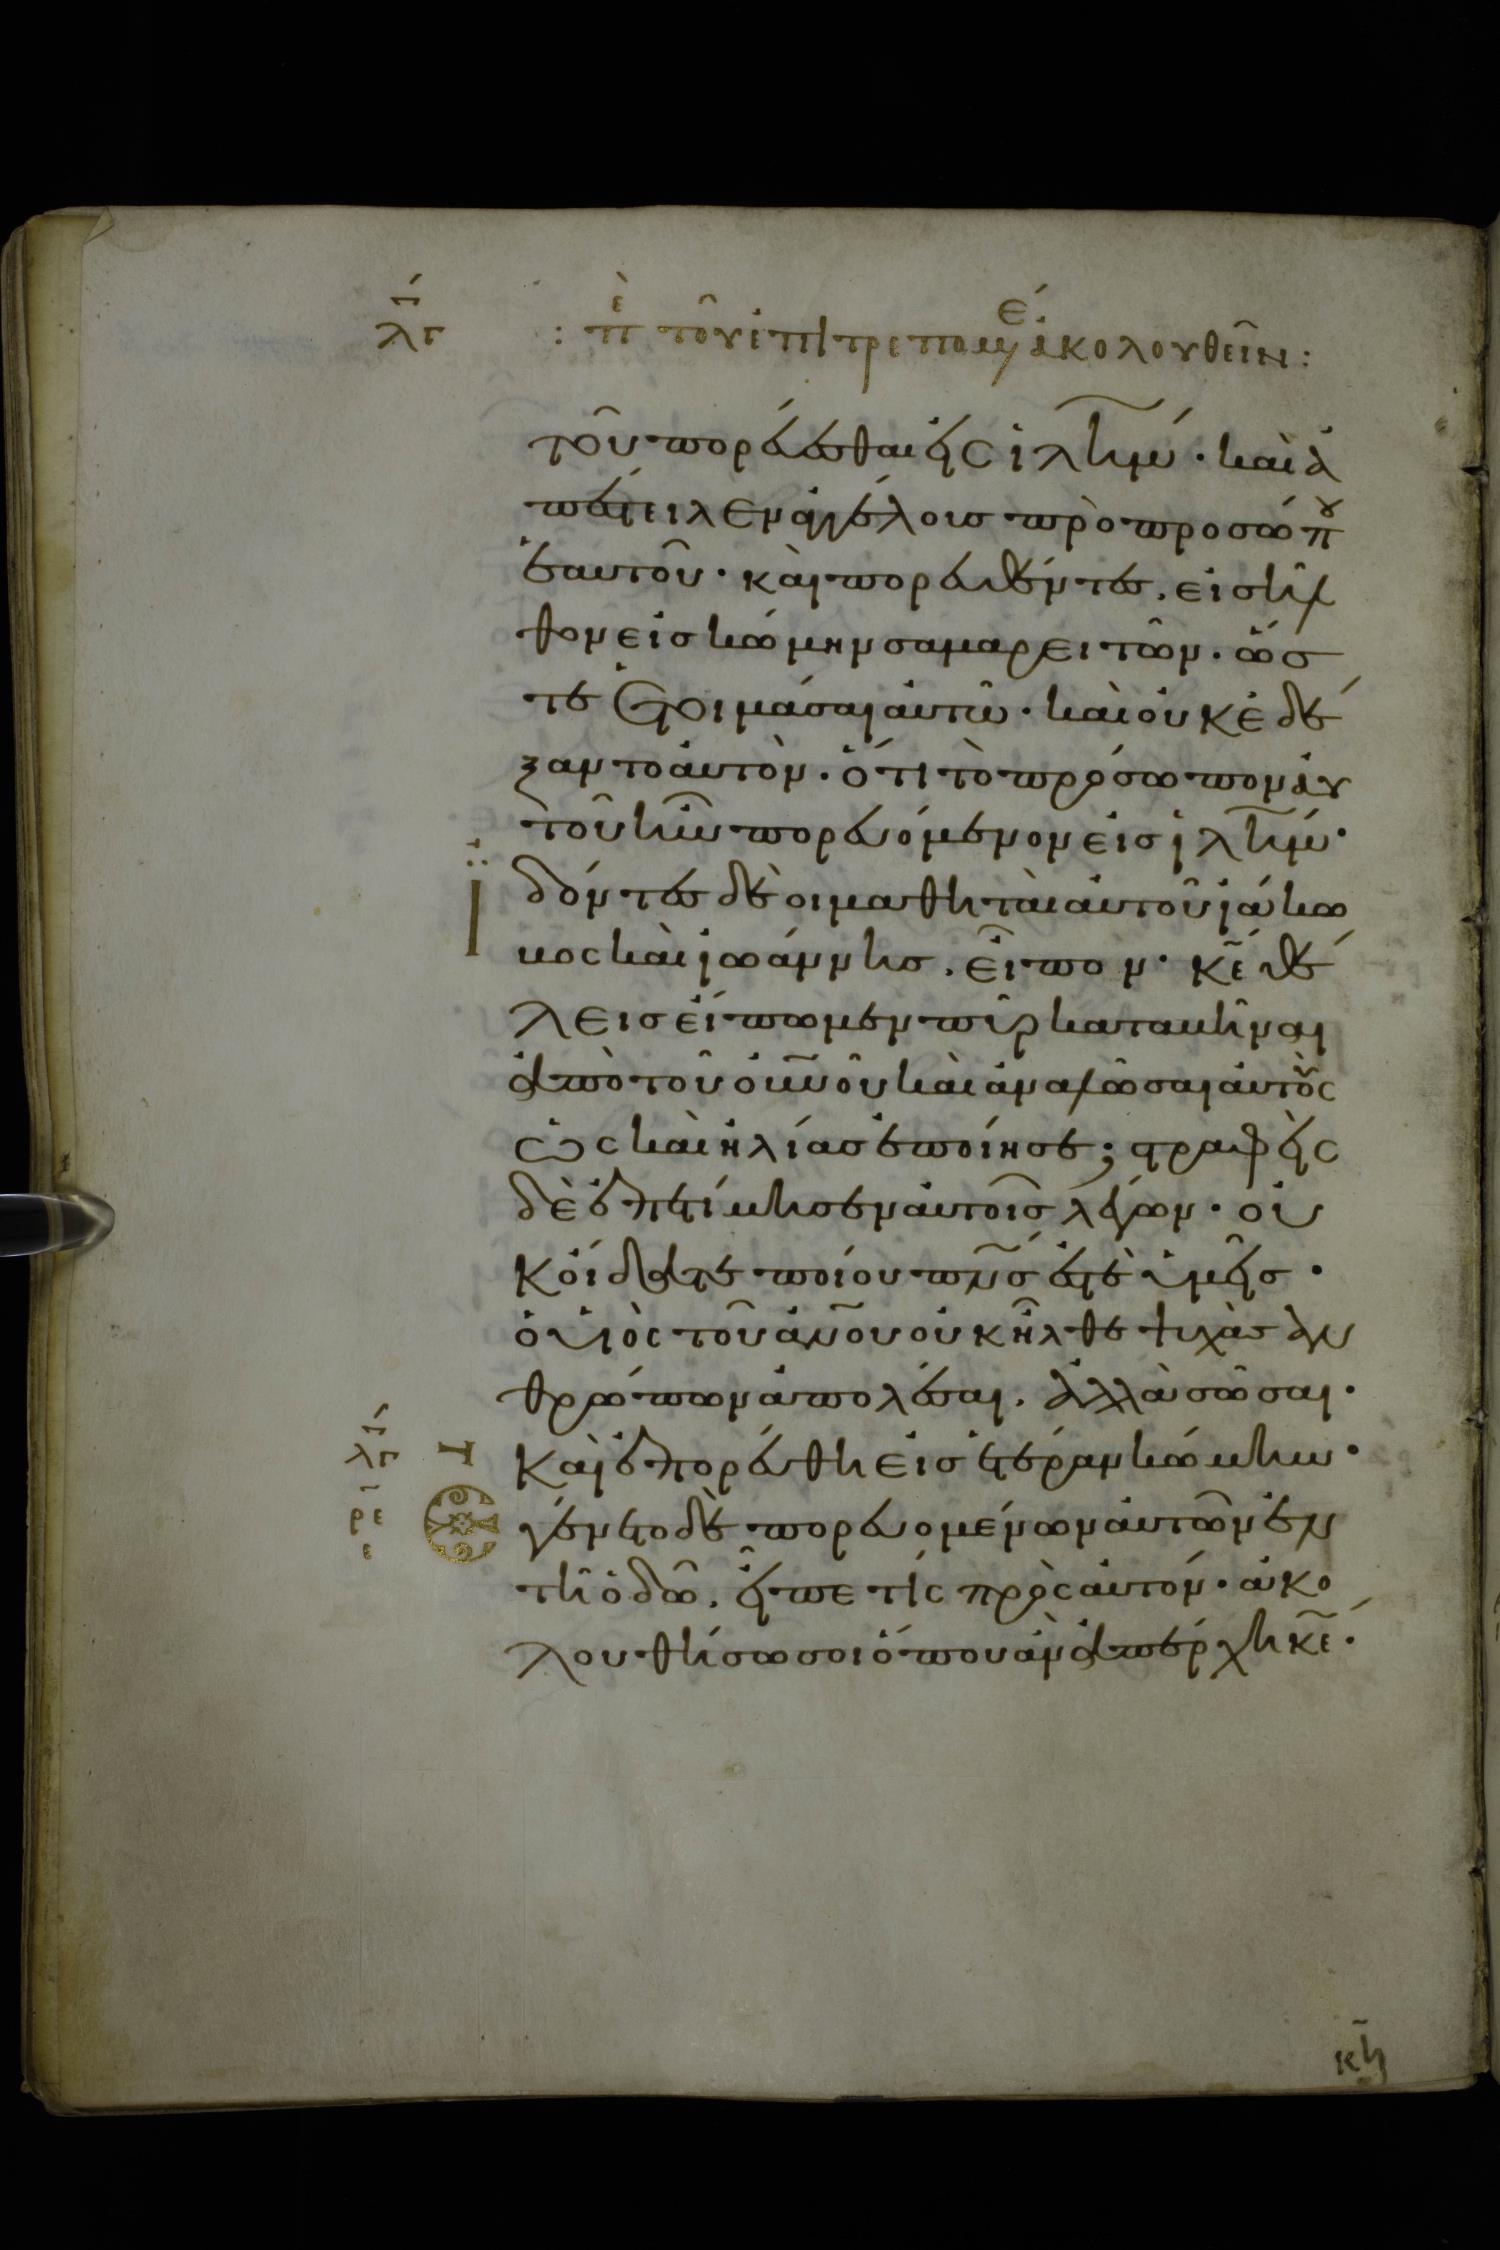 λγ : πε τοῦ ἐπιτρεπομένου ἀκολουθεῖν :
τοῦ πορεύεσθαι εἰς ἰλήμ · καὶ ἀ
πέστειλεν ἀγγέλους πρὸ προσώπου
ἑαυτοῦ · καὶ πορευθέντες . εἰσῆλ
θον εἰς κώμην σαμαρειτῶν · ὥσ
τε ἑτοιμάσαι αὐτῶ · καὶ οὐκ ἐδέ
ξαντο αὐτὸν · ὅτι τὸ πρόσωπον αὐ
τοῦ ἦν πορευόμενον εἰς ἰλήμ ·
ἰδόντες δὲ οἱ μαθηταὶ αὐτοῦ ἰάκω
βος καὶ ἰωάννης . εἶπον · κε θέ
λεις εἴπωμεν πῦρ καταβῆναι
ἀπὸ τοῦ οὐνοῦ καὶ ἀναλῶσαι αὐτοὺς
ὡς καὶ ἠλίας ἐποίησε ; στραφεὶς
δὲ ἐπετίμησεν αὐτοῖς λέγων · οὐ
κ οἴδατε ποίου πνσ ἐστὲ ὑμεῖς ·
ὁ υἱὸς τοῦ ἀνου οὐκ ἦλθε ψυχὰς ἀν
θρώπων ἀπολέσαι . ἀλλὰ σῶσαι ·
Καὶ ἐπορεύθη εἰς ἑτέραν κώμην ·
Ἐγένετο δὲ πορευομένων αὐτῶν ἐν
τῆ ὁδῶ . εἶπέ τίς πρὸς αὐτόν · ἀκο
λουθήσω σοι ὅπου ἂν ἀπέρχη κε ·
κη